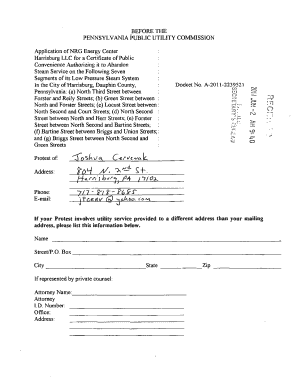 BEFORE THE
PENNSYLVANIA PUBLIC UTILITY COMMISSION
Application of NRG Energy Center
Harrisburg LLC for a Certificate of Public
Convenience Authorizing it to Abandon
Steam Service on the Following Seven
Segments of its Low Pressure Steam System
In the City of Harrisburg, Dauphin County,
Pennsylvania: (a) North Third Street between
Forster and Reily Streets; (b) Green Street between
North and Forster Streets; (c) Locust Street between
North Second and Court Streets; (d) North Second
Street between North and Herr Streets; (e) Forster
Street between North Second and Bartine Streets;
(f) Bartine Street between Briggs and Union Streets;
and (g) Briggs Street between North Second and
Green Streets
Docket No. A-2011-2239521
AM 9:40
Protest of: Joshua
Address: 804 N. 2nd St
Harrisburg, PA 17102
Phone: 717-818-8685
E-mail: @yahoo.com
If your Protest involves utility service provided to a different address than your mailing
address, please list this information below.
Name
Street/P.O. Box
City State Zip
If represented by private counsel:
Attorney Name:
Attorney
I.D. Number:
Office:
Address: